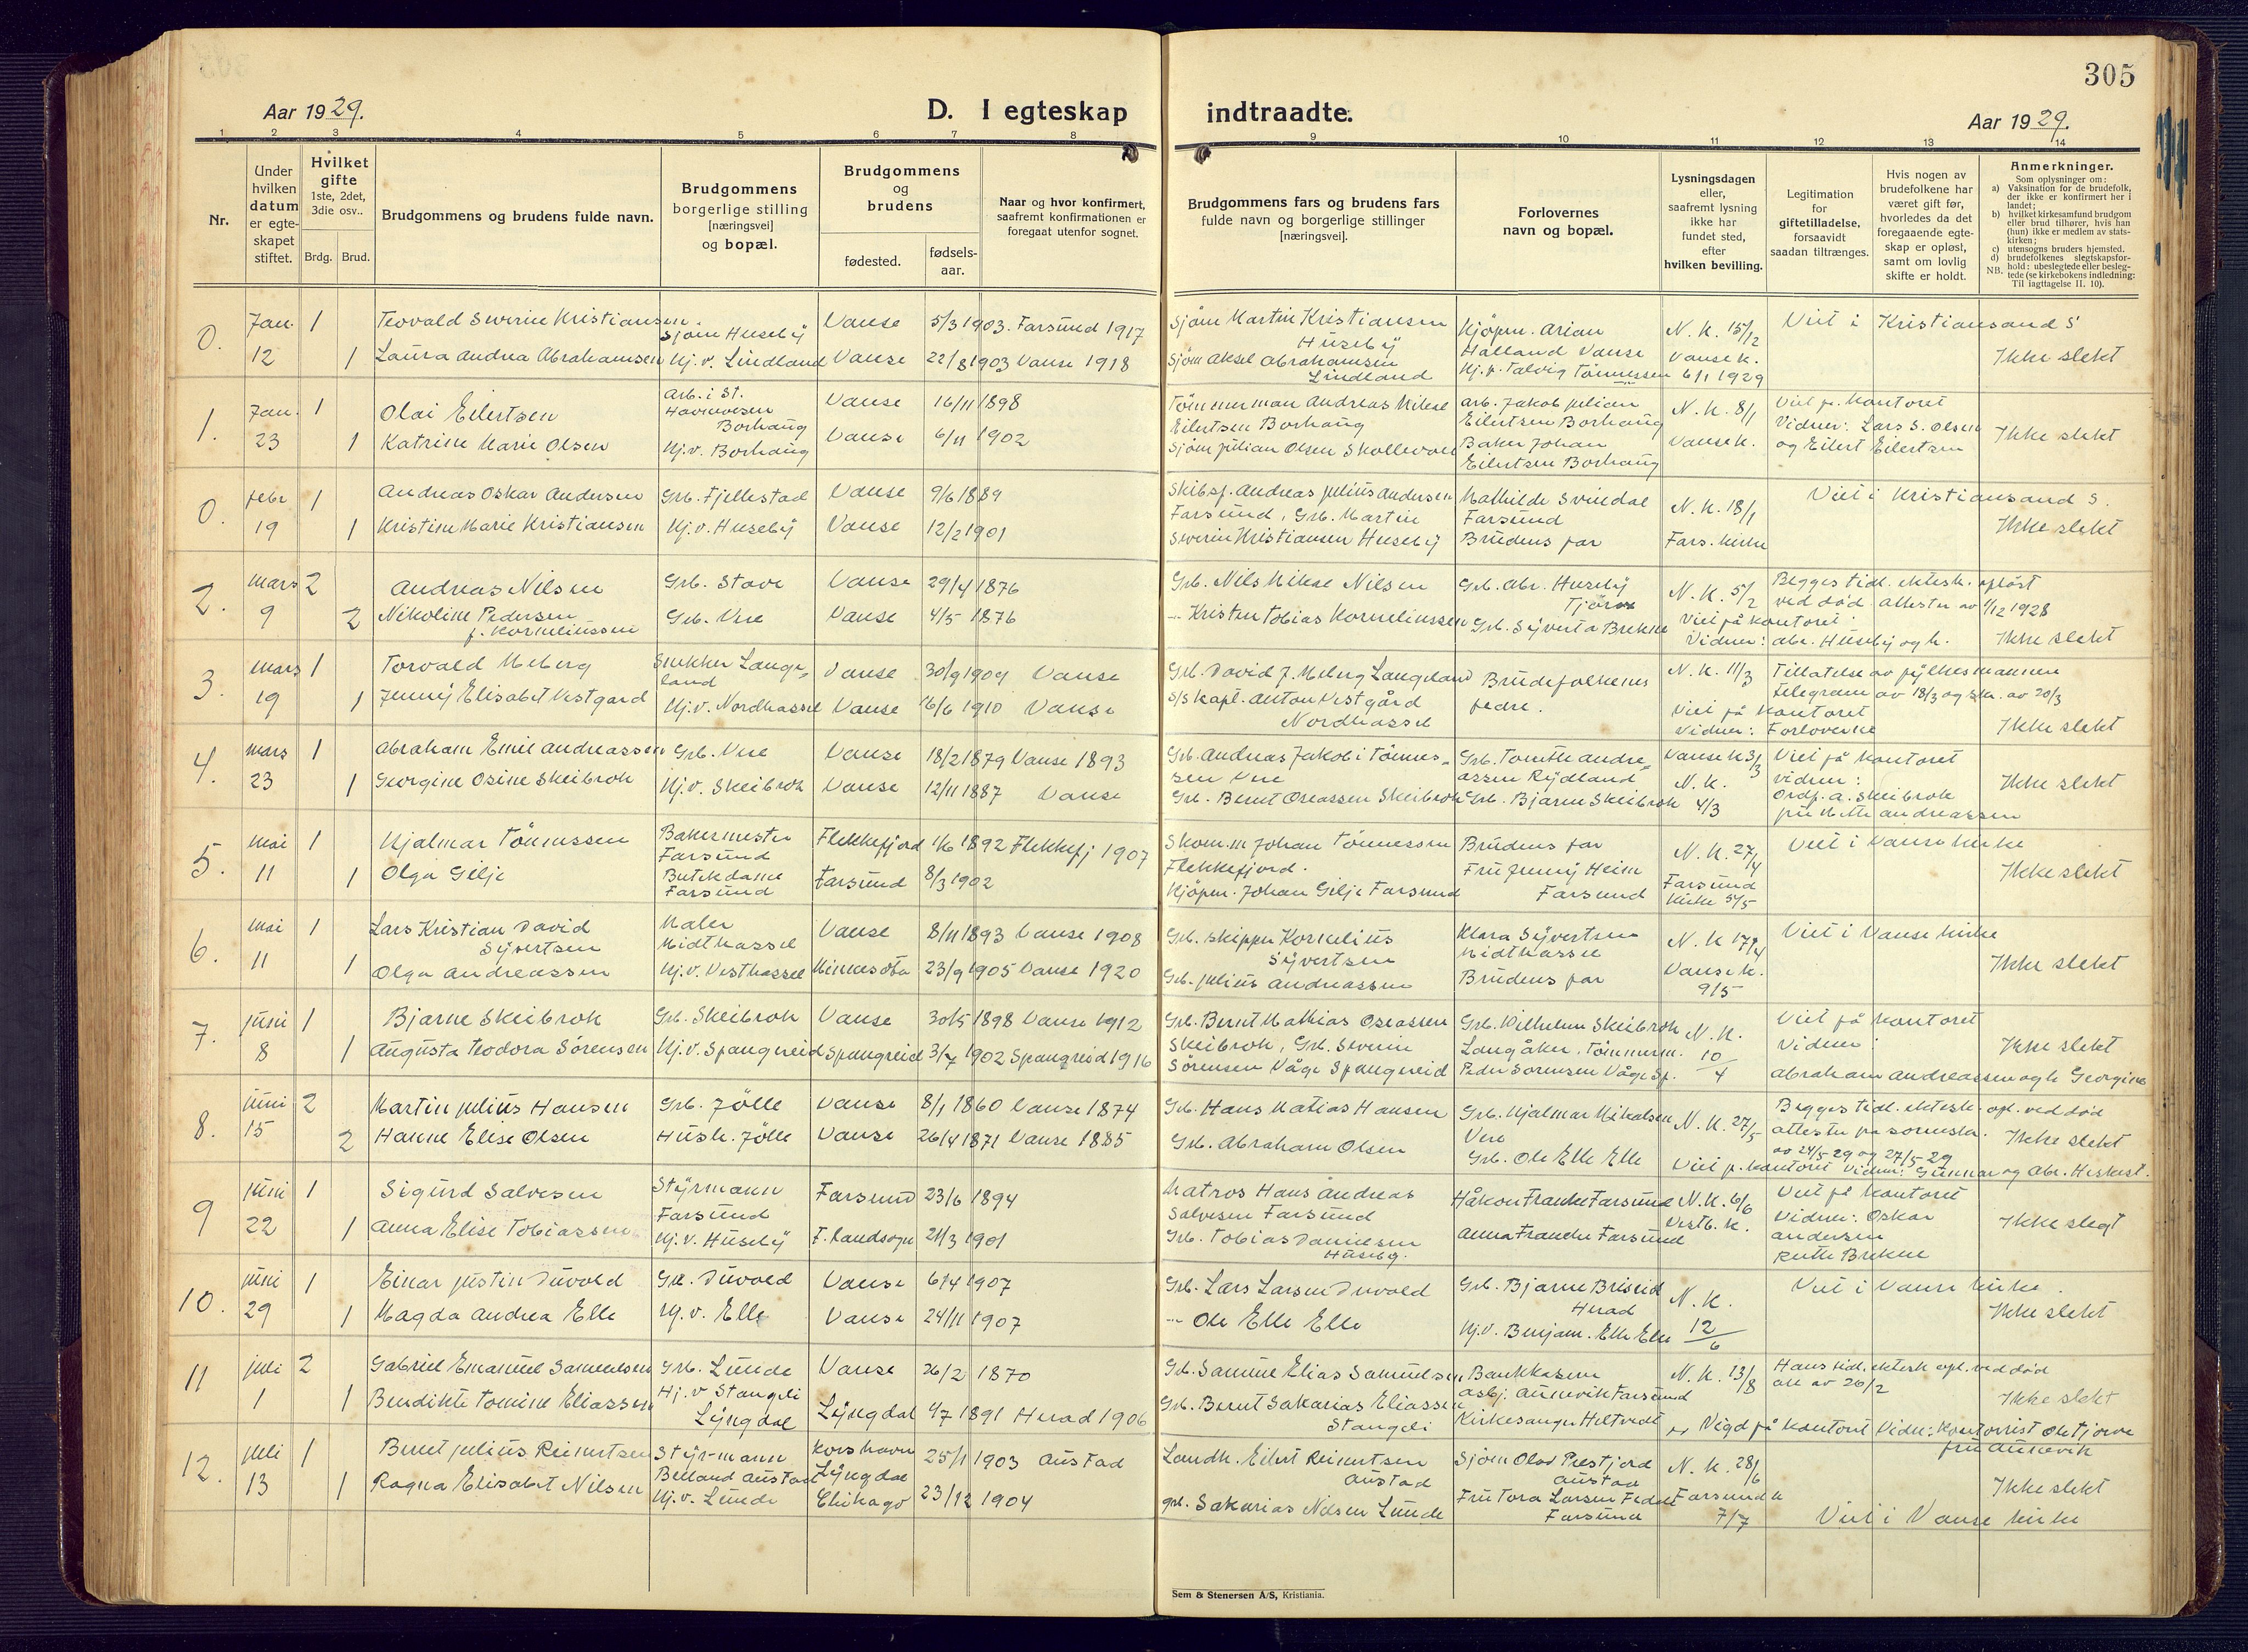 305
Aar 1929.
D. I egteskap indtraadte.
Aar 1929.
1 2 3 4 5 6 7 8 9 10 11 12 13 14
Nr.
Under hvilken datum er egte-skapet stiftet.
Hvilket gifte 1ste, 2det, 3die osv..
Brdg. Brud.
Brudgommens og brudens fulde navn.
Brudgommens borgerlige stilling [næringsvei] og bopæl.
Brudgommens og brudens
fødested.
fødsels-aar.
Naar og hvor konfirmert, saafremt konfirmationen er foregaat utenfor sognet.
Brudgommens fars og brudens fars fulde navn og borgerlige stillinger [næringsvei].
Forlovernes navn og bopæl.
Lysningsdagen eller, saafremt lysning ikke har fundet sted, efter hvilken bevilling.
Legitimation for giftetilladelse, forsaavidt saadan tiltrænges.
Hvis nogen av brudefolkene har været gift før, hvorledes da det foregaaende egte-skap er opløst, samt om lovlig skifte er holdt.
Anmerkninger.
Som oplysninger om:
a) Vaksination for de brudefolk, der ikke er konfirmert her i landet;
b) hvilket kirkesamfund brudgom eller brud tilhører, hvis han (hun) ikke er medlem av stats-kirken;
c) utensogns bruders hjemsted.
d) brudefolkenes slegtskapsfor-hold: ubeslegtede eller besleg-tede (se kirkebokens indledning:
NB. Til iagttagelse II. 10).
0. Jan. 12 1 Teovald Severin Kristiansen Sjøm Huseby Vanse 5/3 1903. Farsund 1917
1 Laura Andrea Abrahamsen Hj.v. Lindland Vanse 22/8 1903 Vanse 1918
Sjøm Martin Kristiansen Huseby
Sjøm Aksel Abrahamsen Lindland
Kjøpm. Arian Halland Vanse
Hj.v. Talvig Tønnessen
N. K. 15/12 Vanse k. 6/1 1929
Viet i Kristiansand S
Ikke slekt
1. Jan. 23 1 Olai Eilertsen Arb. i St. Havnvesen Borhaug Vanse 16/11 1898
1 Katrine Marie Olsen Hj.v. Borhaug Vanse 6/11 1902
Tømmerman Andreas Mikal Eilertsen Borhaug
Sjøm Julian Olsen Skollevoll
Arb. Jakob Julian Eilertsen Borhaug
Baker Johan Eilertsen Borhaug
N. K. 8/1 Vanse k.
Viet p. kontoret Vidner: Lars S. Olsen og Eilert Eilertsen
Ikke slekt
0. febr 19 1 Andreas Oskar Andersen Grb. Fjellestad Vanse 9/6 1889
1 Kristine Marie Kristiansen Hj.v. Huseby Vanse 12/2 1901
Skibsf. Andreas Julius Andersen Farsund, Grb. Martin Severin Kristiansen Huseby
Mathilde Svindal Farsund
Brudens far
N. K. 18/1 Fars. kirke
Viet i Kristiansand S.
Ikke slekt
2. mars 9 2 Andreas Nilsen Grb. Stave Vanse 29/4 1876
2 Nikoline Pedersen f. Korneliussen Grb. Vere Vanse 4/5 1876
Grb. Nils Mikal Nilsen
" Kristen Tobias Korneliussen
Grb. Abr. Huseby Tjørve
Grb. Syvert a Brekne
N. K. 5/2
Begges tidl. ektesk. opløst ved død. attester av 1/12 1928
Viet på kontoret. Vidner: Abr. Huseby og h.
Ikke slekt
3. mars 19 1 Torvald Meberg Snekker Lange-land Vanse 30/9 1909 Vanse
1 Jenny Elisabet Vestgard Hj.v. Nordhassel Vanse 16/6 1910 Vanse
Grb. David J. Meberg Langeland
S/s kapt. Anton Vestgård Nordhassel
Brudefolkenes fedre.
N. K. 11/3
Tillatelse av fylkesmannen telegram av 18/3 og skr. av 20/3
Viet på kontoret
Vidner: Forloverne
Ikke slekt
4. mars 23 1 Abraham Emil Andreassen Grb. Vere Vanse 18/2 1879 Vanse 1893
1 Georgine Osine Skeibrok Hj.v. Skeibrok Vanse 12/11 1887 Vanse
Grb. Andreas Jakobi Tønnes-sen Vere
Grb. Bernt Oseassen Skeibrok
Grb. Tomethe Andre-assen Rydland
Grb. Bjarne Skeibrok
Vanse k 3/3 N. K. 4/3
Viet på kontoret vidner: Ordf. A. Skeibrok fru Mette Andreassen
Ikke slekt
5. mai 11 1 Hjalmar Tønnessen Bakermester Farsund Flekkefjord 1/6 1892 Flekkefj 1907
1 Olga Gilje Butikdame Farsund Farsund 8/3 1902
Skom.m Johan Tønnessen Flekkefjord.
Kjøpm. Johan Gilje Farsund
Brudens far
Fru Jenny Heim Farsund
N. K. 27/4 Farsund kirke 5/5
Viet i Vanse kirke
Ikke slekt
6. mai 11 1 Lars Kristian David Syvertsen Maler Midthassel Vanse 8/11 1893 Vanse 1908
1 Olga Andreassen Hj.v. Vesthassel Minnesota 23/9 1905 Vanse 1920
Grb. skipper Kornelius Syvertsen
Grb. Julius Andreassen
Klara Syvertsen Midthassel
Brudens far
N. K 17/4 Vanse k. 9/5
Viet i Vanse kirke
Ikke slekt
7. juni 8 1 Bjarne Skeibrok Grb. Skeibrok Vanse 30/5 1898 Vanse 1912
1 Augusta Teodora Sørensen Hj.v. Spangereid Spangreid 3/7 1902 Spangreid 1916
Grb. Bernt Mathias Oseassen Skeibrok, Grb. Severin Sørensen Våge Spangereid
Grb. Vilhelm Skeibrok Langåker, Tømmerm. Peder Sørensen Våge Sp.
N. K. 10/4
Viet på kontoret Vidner: Abraham Andreassen og h Georgine
Ikke slekt
8. juni 15 2 Martin Julius Hansen Grb. Jølle Vanse 8/1 1860 Vanse 1874
2 Hanne Elise Olsen Hush. Jølle Vanse 26/4 1871 Vanse 1885
Grb. Hans Matias Hansen
Grb. Abraham Olsen
Grb. Hjalmar Mikalsen Vere
Grb. Ole Elle Elle
N. K. 27/5
Begges tidl. ektesk. opl. ved død attester fra sorensk. av 24/5 29 og 27/5 29
Viet p. kontoret Vidner: Gunnar og Abr. Heskest.
Ikke slekt
9 juni 22 1 Sigurd Salvesen Styrmann Farsund Farsund 23/6 1894
1 Anna Elise Tobiassen Hj.v. Huseby F. landsogn 21/3 1901
Matros Hans Andreas Salvesen Farsund
Grb. Tobias Danielsen Huseby.
Håkon Francke Farsund
Anna Francke Farsund
N. K. 6/6 Vestb. K.
Viet på kontoret Vidner: Oskar Andersen Ruth Brekne
Ikke slegt
10. juni 29 1 Einar Justin Duvold Grb. Duvold Vanse 6/4 1907
1 Magda Andrea Elle Hj.v. Elle Vanse 24/11 1907
Grb. Lars Larsen Duvold
" Ole Elle Elle
Grb. Bjarne Briseid Herad
Hj.v. Benjam. Elle Elle
N. K. 12/6
Viet i Vanse kirke.
Ikke slekt
11 juli 1 2 Gabriel Emanuel Samuelsen Grb. Lunde Vanse 26/2 1870
1 Bendikte Tomine Eliassen Hj.v Stangeli Lyngdal Lyngdal 4/7 1891 Herad 1906
Grb. Samuel Elias Samuelsen
Grb. Bernt Sakarias Eliassen Stangeli
Bankkasserer Asbj. Aunevik Farsund
Kirkesanger Heltvedt
N. K. 13/8
Hans tidl. ektesk opl. ved død att av 26/2
Vigd på kontoret Vidn: Kontorist Ole Tjørve fru Aunevik
Ikke slekt
12. juli 13 1 Bernt Julius Reinertsen Styrmann Belland Austad Korshavn Lyngdal 25/1 1903 Austad
1 Ragna Elisabet Nilsen Hj.v. Lunde Chikago 23/12 1904
Landh. Eilert Reinertsen Austad
grb. Sakarias Nilsen Lunde
Sjøm Olav Prestjord Austad
Fru Tora Larsen Farsund
N. K. 28/6 Farsund k 7/7
Ikke slekt
Viet i Vanse kirke
Sem & Stenersen A/S, Kristiania.